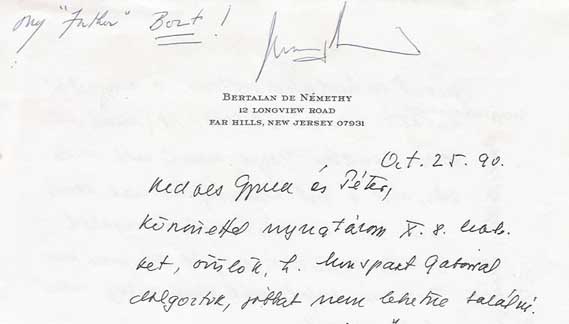 My "Father" Bert!
BERTALAN DE NÉMETHY
12 LONGVIEW ROAD
FAR HILLS, NEW JERSEY 07931
Oct. 25. 90.
Kedves és Péter,
köszönettel nyugtázom X. 8. leve-
ket, örülök, h. Monspart Gáborral
dolgoztok, jobbat nem lehetne találni.